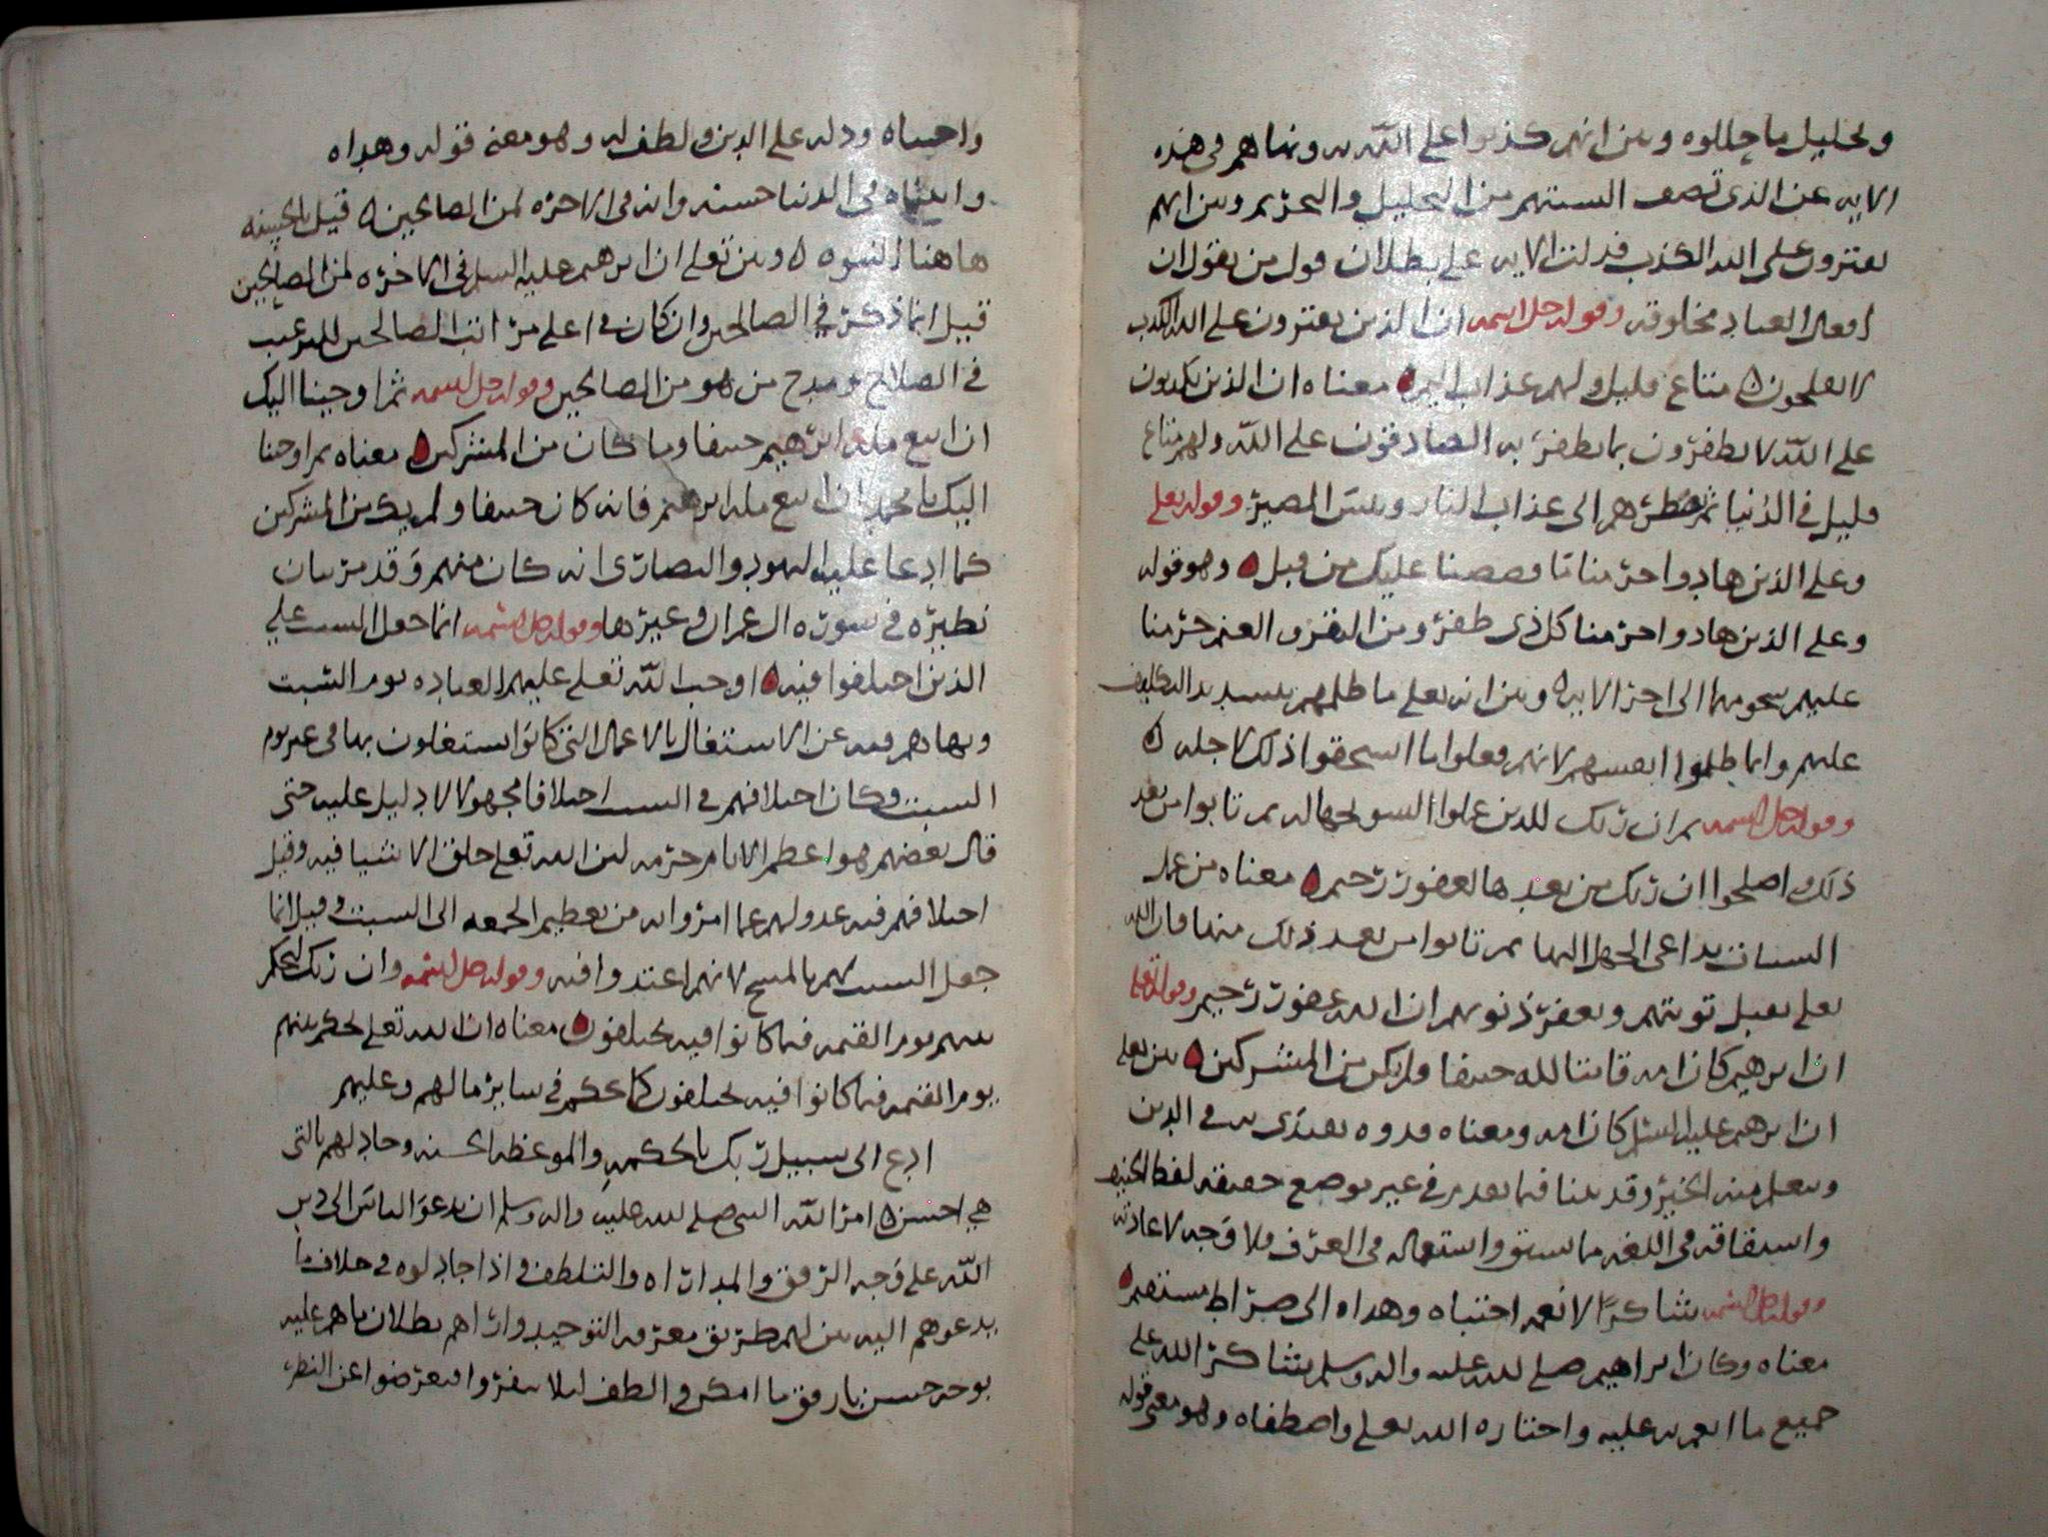 وتحليل ما حللوه وبين انهم كذبوا على الله به ونهاهم في هذه
الايه عن الذي تصف السنتهم من التحليل والتحريم وبين انهم
يفترون على الله الكذب فدلت الايه على بطلان قول من يقول ان
افعال العباد مخلوقه وقوله جل اسمه ان الذين يفترون على الله الكذب
لا يفلحون ه متاع قليل ولهم عذاب اليم ه معناه ان الذين يكذبون
على الله لا يظفرون بما يظفر به الصادقون على الله ولهم متاع
قليل في الدنيا ثم يضطرهم الى عذاب النار وبئس المصير وقوله تعلى
وعلى الذين هادوا حرمنا ما قصصنا عليك من قبل ه وهو قوله
وعلى الذين هادوا حرمنا كل ذى ظفر ومن البقر والغنم حرمنا
عليهم شحومهما الى اخر الايه ه وبين انه تعلى ما ظلمهم بتشديد التكليف
عليهم وانما ظلموا انفسهم لانهم فعلوا ما استحقوا ذلك لاجله ه
وقوله جل اسمه ثم ان ربك للذين عملوا السو بجهاله ثم تابوا من بعد
ذلك واصلحوا ان ربك من بعدها لغفور رحيم ه معناه من عمل
السيات بداعى الجهل اليها ثم تابوا من بعد ذلك منها فان الله
تعلى يقبل توبتهم ويغفر ذنوبهم ان الله غفور رحيم وقوله تعلى
ان ابرهيم كان امه قانتا لله حنيفا ولم يكن من المشركين ه بين تعلى
ان ابرهيم عليه السلم كان امه ومعناه قدوه يقتدى به في الدين
ويتعلم منه الخير وقد بينا فيما تقدم في غير موضع حقيقه لفظ الحنيف
واشتقاقه في اللغه ما سبق واستعماله في العرف فلا وجه لاعادته
وقوله جل اسمه شاكرا لانعمه اجتباه وهداه الى صراط مستقيم ه
معناه وكان ابراهيم صلى الله عليه واله وسلم شاكر الله على
جميع ما انعم به عليه واختاره الله تعلى واصطفاه وهو معنى قوله
واجتباه ودله على الدين ولطف له وهو معنى قوله وهداه
واتيناه في الدنيا حسنه وانه في الاخره لمن الصالحين ه قيل بالحسنه
هاهنا النبوه ه وبين تعلى ان ابرهيم عليه السلم في الاخره لمن الصالحين
قيل انما ذكر في الصالحين وان كان في اعلى مراتب الصالحين للترغيب
في الصلاح ومدح من هو من الصالحين وقوله جل اسمه ثم اوحينا اليك
ان اتبع مله ابرهيم حنيفا وما كان من المشركين ه معناه ثم اوحينا
اليك يا محمد ان اتبع مله ابرهيم فانه كان حنيفا ولم يك من المشركين
كما ادعا عليه اليهود والنصارى انه كان منهم وقد مر بيان
نظيره في سوره ال عمران وغيرها وقوله جل اسمه انما جعل السبت على
الذين اختلفوا فيه ه اوجب الله تعلى عليهم العباده يوم السبت
ونهاهم فيه عن الاشتغال بالاعمال التي كانوا يشتغلون بها في غير يوم
السبت وكان اختلافهم في السبت اختلافا مجهولا لا دليل عليه حتى
قال بعضهم هو اعظم الايام حرمه لان الله تعلى خلق الاشيا فيه وقيل
اختلافهم فيه عدولهم عما امروا به من تعظيم الجمعه الى السبت وقيل انما
جعل السبت لهم بالمسخ لانهم اعتدوا فيه وقوله جل اسمه وان ربك ليحكم
بينهم يوم القيمه فيما كانوا فيه يختلفون ه معناه ان الله تعلى يحكم بينهم
يوم القيمه فيما كانوا فيه يختلفون كما يحكم في ساير ما لهم وعليهم
ادع الى سبيل ربك بالحكمه والموعظه الحسنه وجادلهم بالتى
هي احسن ه امر الله النبي صلى الله عليه واله وسلم ان يدعو الناس الى دين
الله على وجه الرفق والمداراه والتلطف في اذا جادلوه في خلاف ما
يدعوهم اليه بين لهم طريق معرفه التوحيد واراهم بطلان ما هم عليه
بوجه حسن بارفق ما امكن والطف ليلا ينفروا فيعرضوا عن النظر